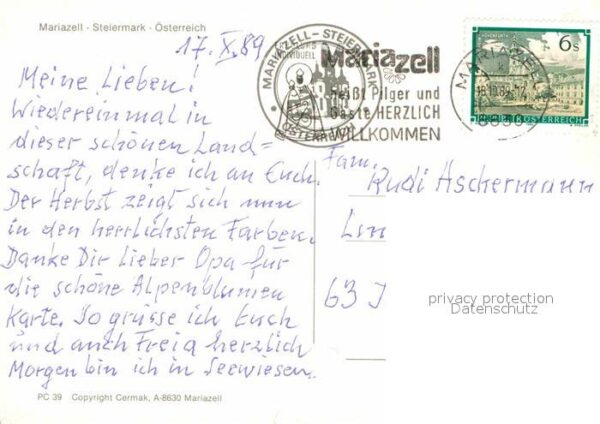 Mariazell - Steiermark - Österreich
17. X. 89
Meine Lieben!
Wiedereinmal in
dieser schönen Land=
schaft, denke ich an Euch.
Der Herbst zeigt sich nun
in den herrlichsten Farben.
Danke Dir lieber Opa für
die schöne Alpenblumen
Karte. So grüsse ich Euch
und auch Freia herzlich
Morgen bin ich in Seewiesen.
PC 39 Copyright Cermak, A-8630 Mariazell
MARIAZELL - STEIERMARK
ÖSTERR
Mariazell
heißt Pilger und
Gäste HERZLICH
WILLKOMMEN
MARIAZELL
8630
6s
REPUBLIK ÖSTERREICH
Fam.
Rudi Aschermann
Lin
63 I
privacy protection
Datenschutz